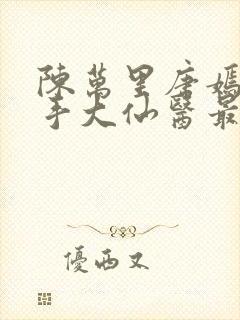 陳萬里唐嫣
手大仙醫最
優西又